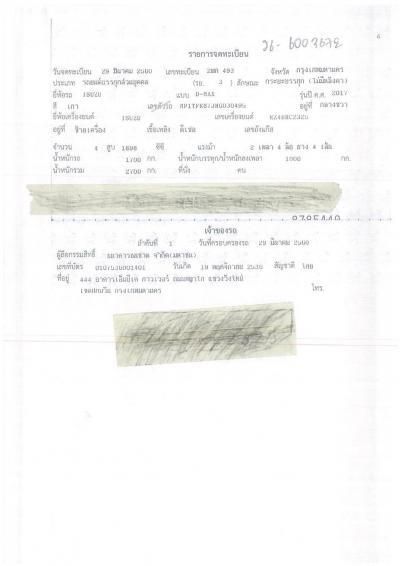 6
รายการจดทะเบียน
วันจดทะเบียน 29 มีนาคม 2560 เลขทะเบียน 2ฒต 493 จังหวัด กรุงเทพมหานคร
ประเภท รถยนต์บรรทุกส่วนบุคคล (รย. 3 ) ลักษณะ กระบะบรรทุก (ไม่มีหลังคา)
ยี่ห้อรถ ISUZU แบบ D-MAX รุ่นปี ค.ศ. 2017
สี เทา เลขตัวรถ อยู่ที่ กลางขวา
ยี่ห้อเครื่องยนต์ ISUZU เลขเครื่องยนต์
อยู่ที่ ซ้ายเครื่อง เชื้อเพลิง ดีเซล เลขถังแก๊ส
จำนวน 4 สูบ 1898 ซีซี แรงม้า 2 เพลา 4 ล้อ ยาง 4 เส้น
น้ำหนักรถ 1700 กก. น้ำหนักบรรทุก/น้ำหนักลงเพลา 1000 กก.
น้ำหนักรวม 2700 กก. ที่นั่ง คน
เจ้าของรถ
ลำดับที่ 1 วันที่ครอบครองรถ 29 มีนาคม 2560
ผู้ถือกรรมสิทธิ์ ธนาคารธนชาต จำกัด(มหาชน)
เลขที่บัตร 0107536001401 วันเกิด 19 พฤศจิกายน 2536 สัญชาติ ไทย
ที่อยู่ 444 อาคารเอ็มบีเค ทาวเวอร์ ถนนพญาไท แขวงวังใหม่
เขตปทุมวัน กรุงเทพมหานคร โทร.